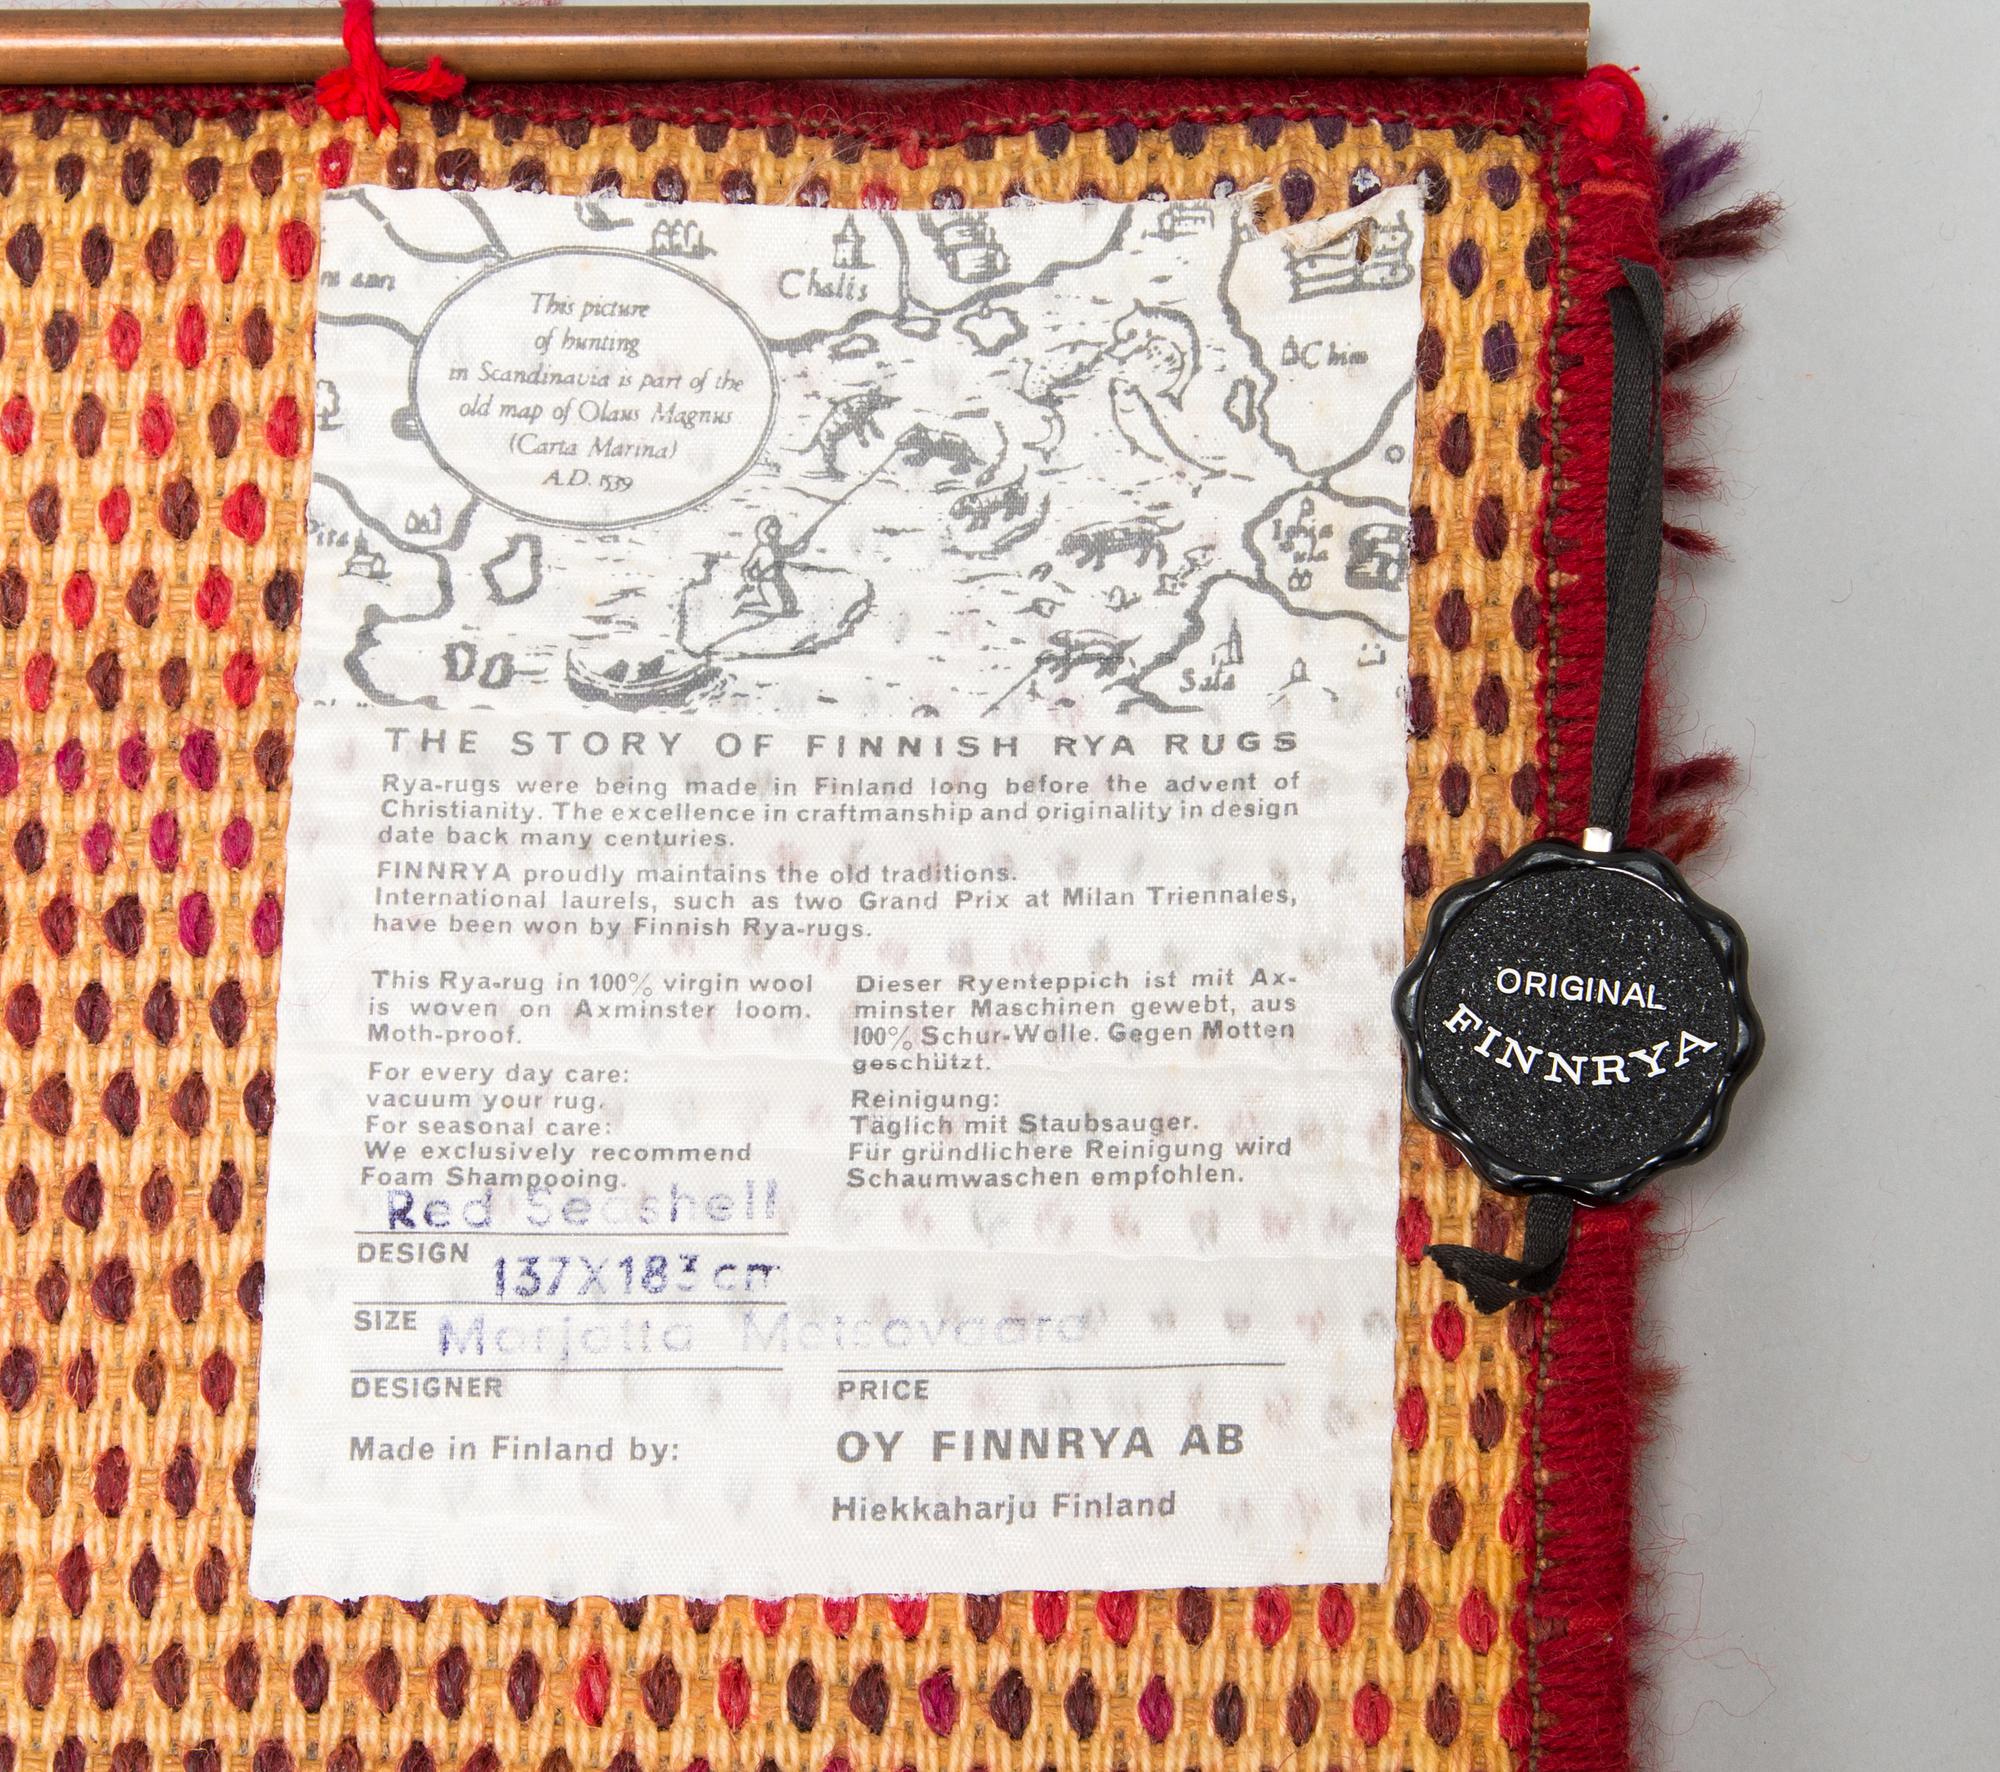 Chalis
This picture
of hunting
in Scandinavia is part of the
old map of Olaus Magnus
(Carta Marina)
A.D. 1539
Sala
THE STORY OF FINNISH RYA RUGS
Rya-rugs were being made in Finland long before the advent of
Christianity. The excellence in craftmanship and originality in design
date back many centuries.
FINNRYA proudly maintains the old traditions.
International laurels, such as two Grand Prix at Milan Triennales,
have been won by Finnish Rya-rugs.
This Rya-rug in 100% virgin wool
is woven on Axminster loom.
Moth-proof.
For every day care:
vacuum your rug.
For seasonal care:
We exclusively recommend
Foam Shampooing.
Dieser Ryenteppich ist mit Ax-
minster Maschinen gewebt, aus
100% Schur-Wolle. Gegen Motten
geschützt.
Reinigung:
Täglich mit Staubsauger.
Für gründlichere Reinigung wird
Schaumwaschen empfohlen.
Red Seashell
DESIGN
137X183cm
SIZE
Marjatta Metsovaara
DESIGNER
PRICE
Made in Finland by:
OY FINNRYA AB
Hiekkaharju Finland
ORIGINAL
FINNRYA